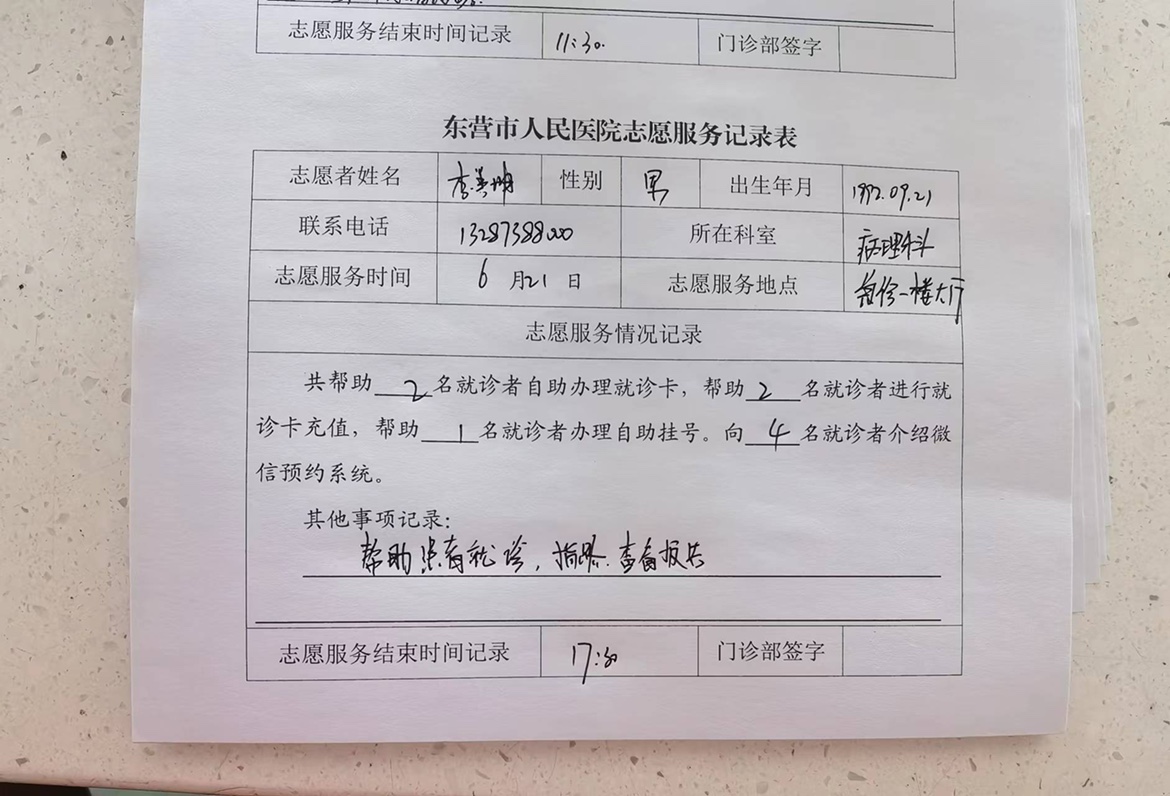 志愿服务结束时间记录 11:30. 门诊部签字
东营市人民医院志愿服务记录表
志愿者姓名 李美珊 性别 男 出生年月 1992.09.21
联系电话 13287388000 所在科室 病理科
志愿服务时间 6月21日 志愿服务地点 门诊一楼大厅
志愿服务情况记录
共帮助 2 名就诊者自助办理就诊卡，帮助 2 名就诊者进行就
诊卡充值，帮助 1 名就诊者办理自助挂号。向 4 名就诊者介绍微
信预约系统。
其他事项记录：
帮助患者就诊，指路.查看报告
志愿服务结束时间记录 17:30 门诊部签字